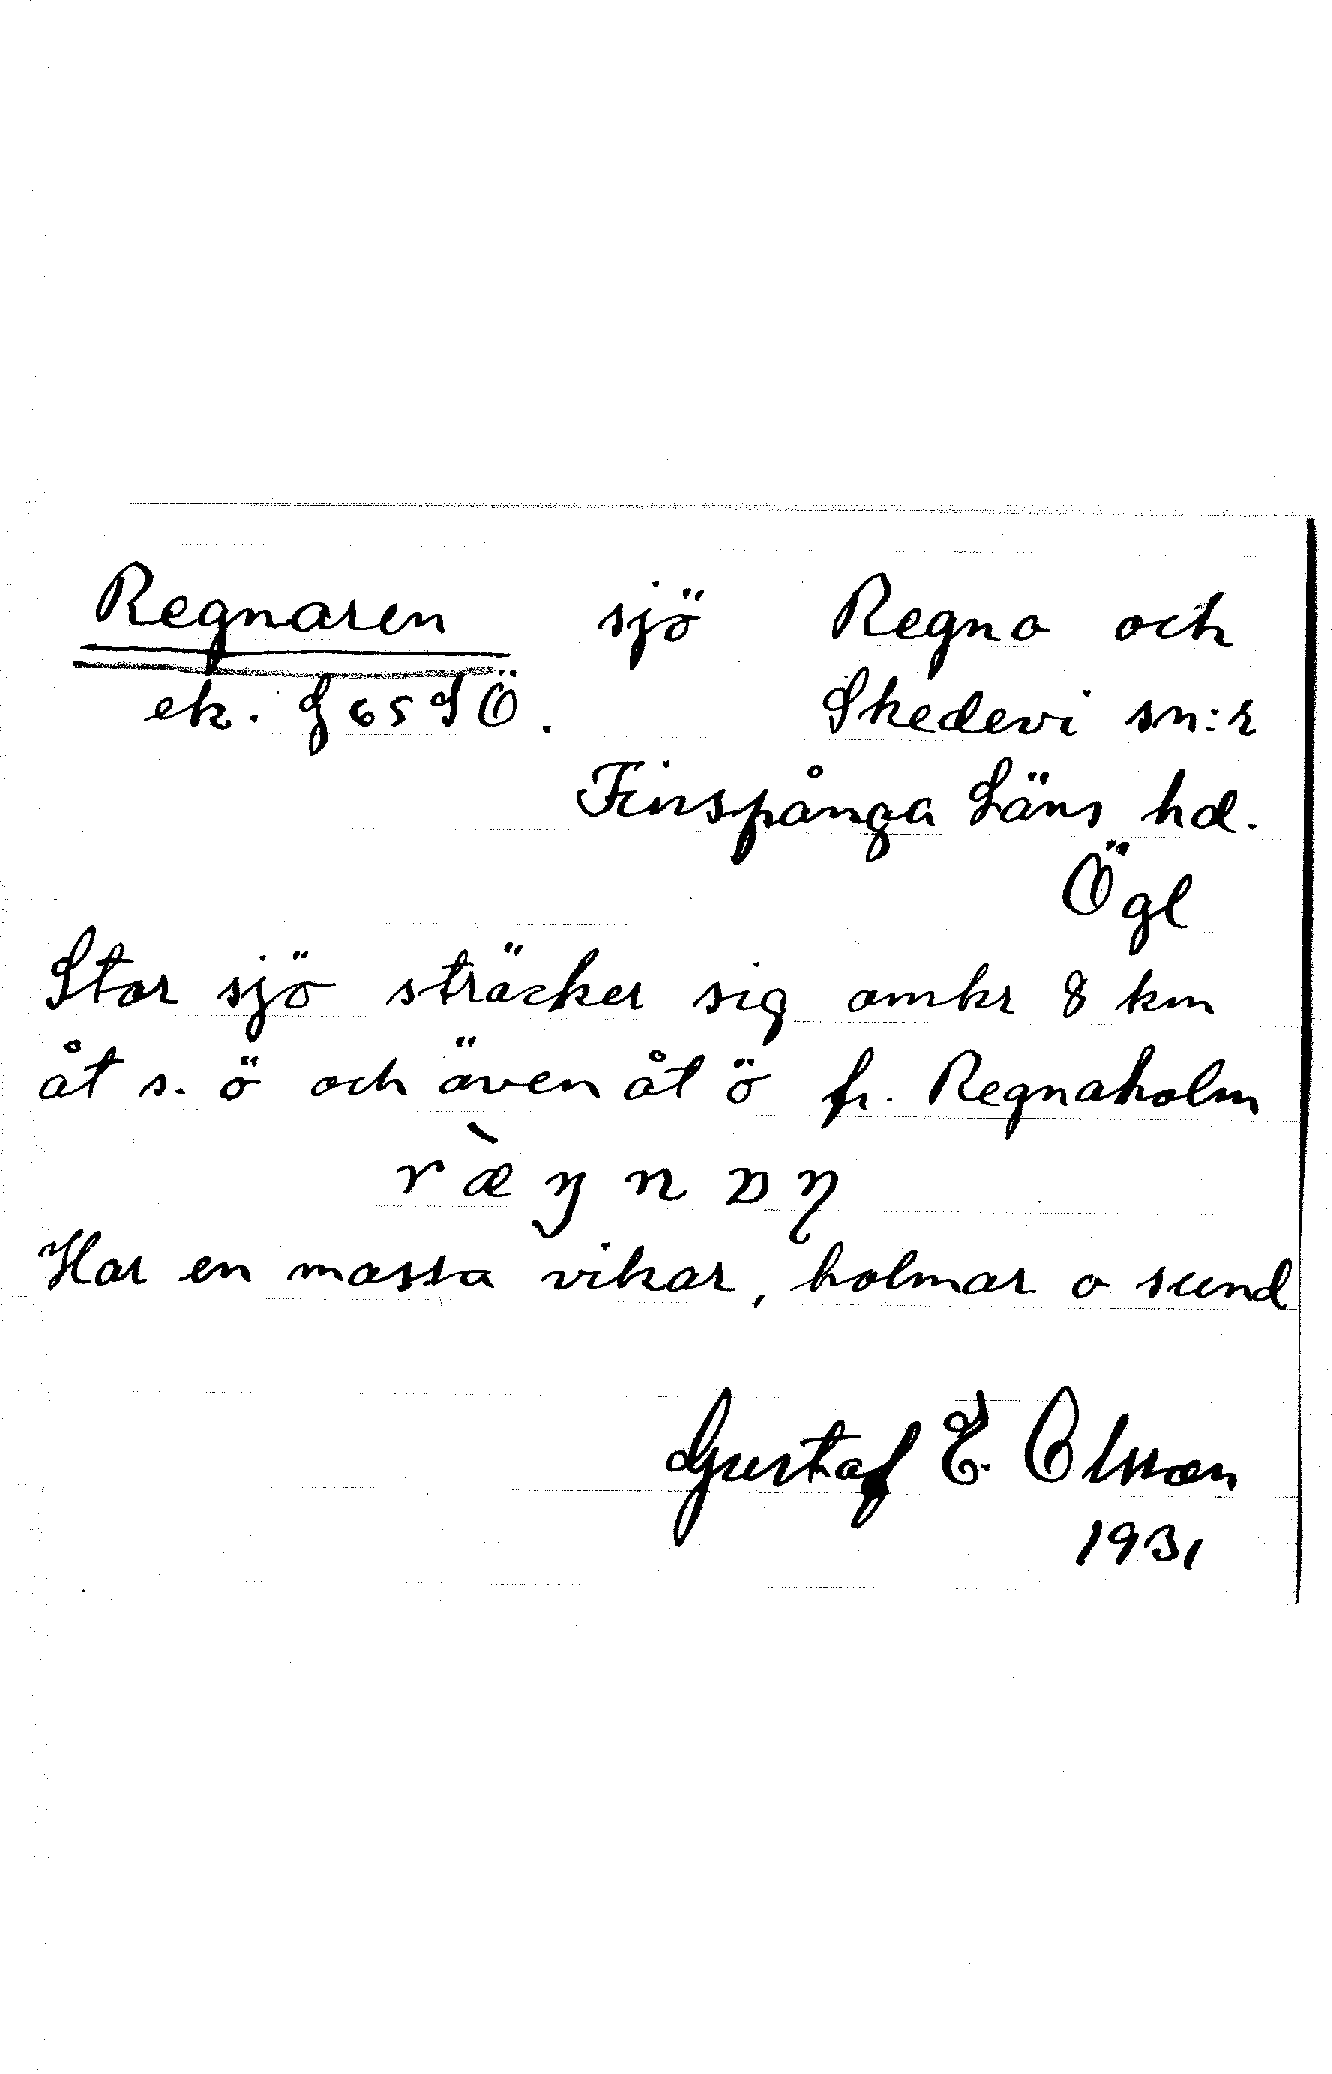 Regnaren sjö Regna och
ek. J65SÖ. Skedevi sn:r
Finspånga Läns hd.
Ögl
Stor sjö sträcker sig omkr 8 km
åt s. ö och även åt ö fr. Regnaholm
Har en massa vikar, holmar o sund
Gustaf E. Olsson
1931